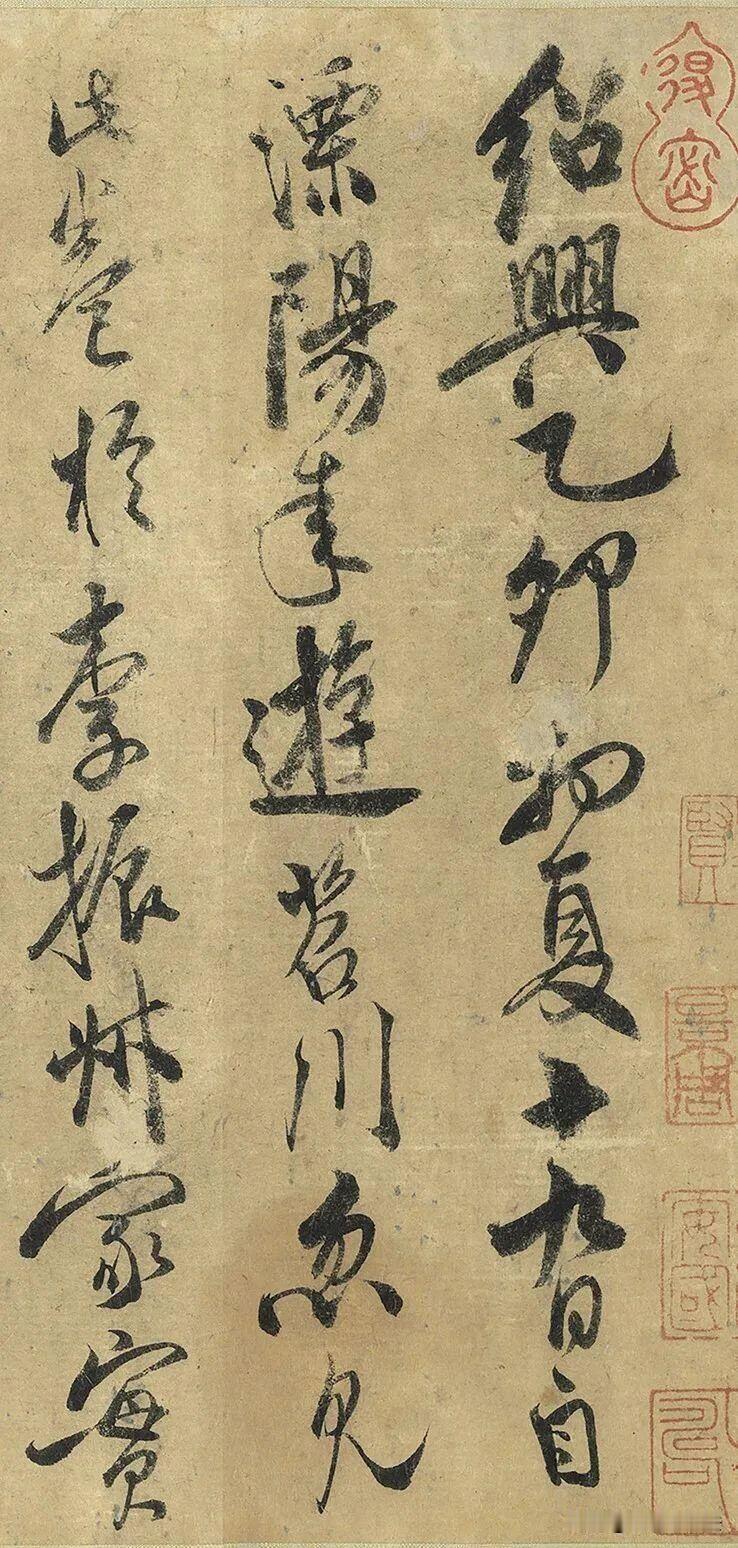 紹興乙卯初夏十九日自
溧陽來遊苕川忽見
此卷於李振叔家實
得密